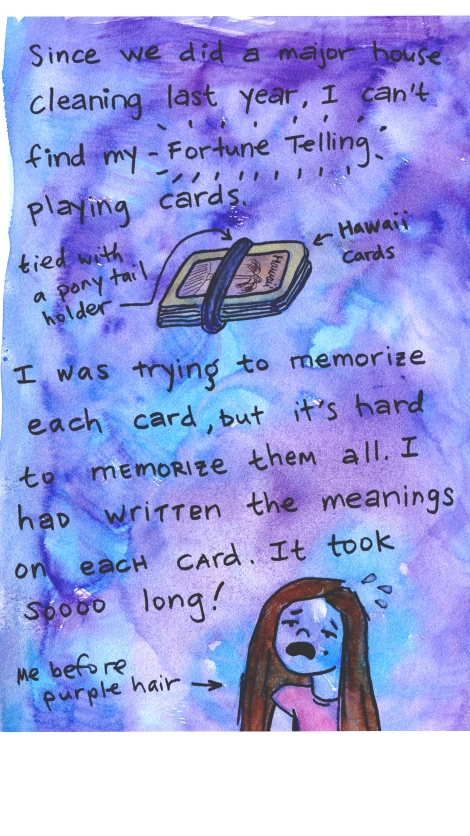 Since we did a major house
cleaning last year, I can't
find my - Fortune Telling -
playing cards.
tied with
a pony tail
holder
Hawaii
cards
Hawaii
I was trying to memorize
each card, but it's hard
to MEMORIZE them all. I
had written the meanings
on each card. It took
Soooo long!
Me before
purple hair